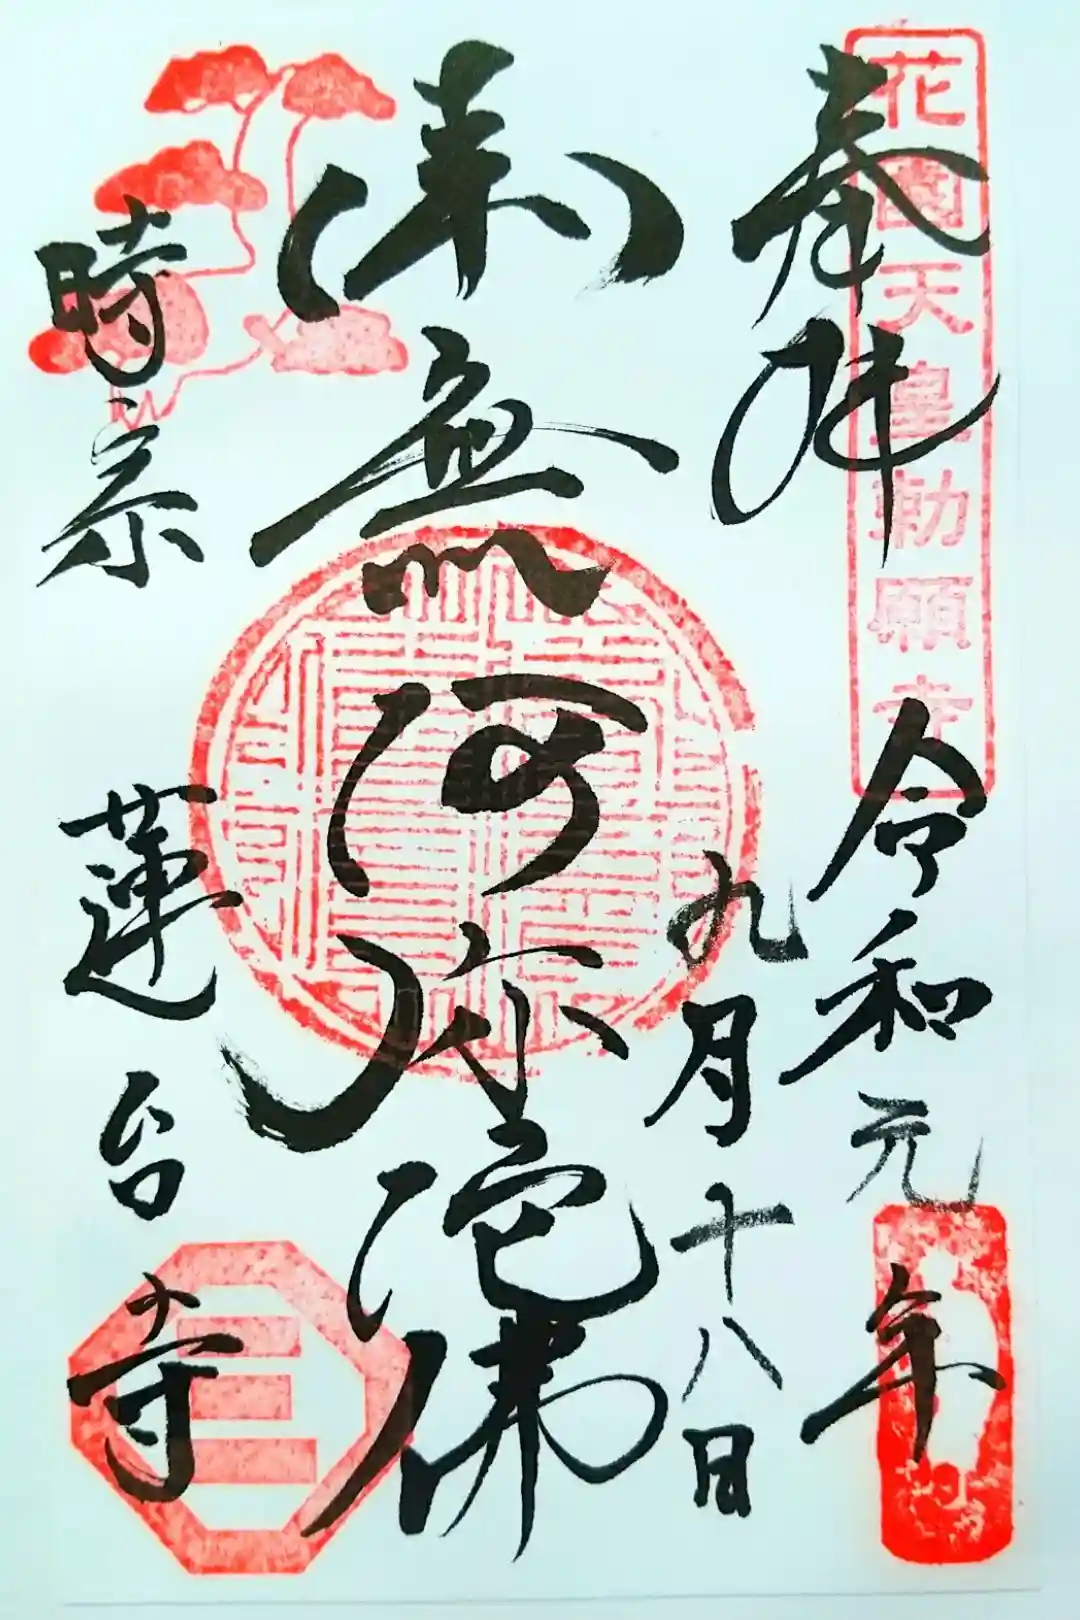 奉拝
花園天皇勅願寺
令和元年
九月十八日
南無阿弥陀佛
時宗
蓮台寺